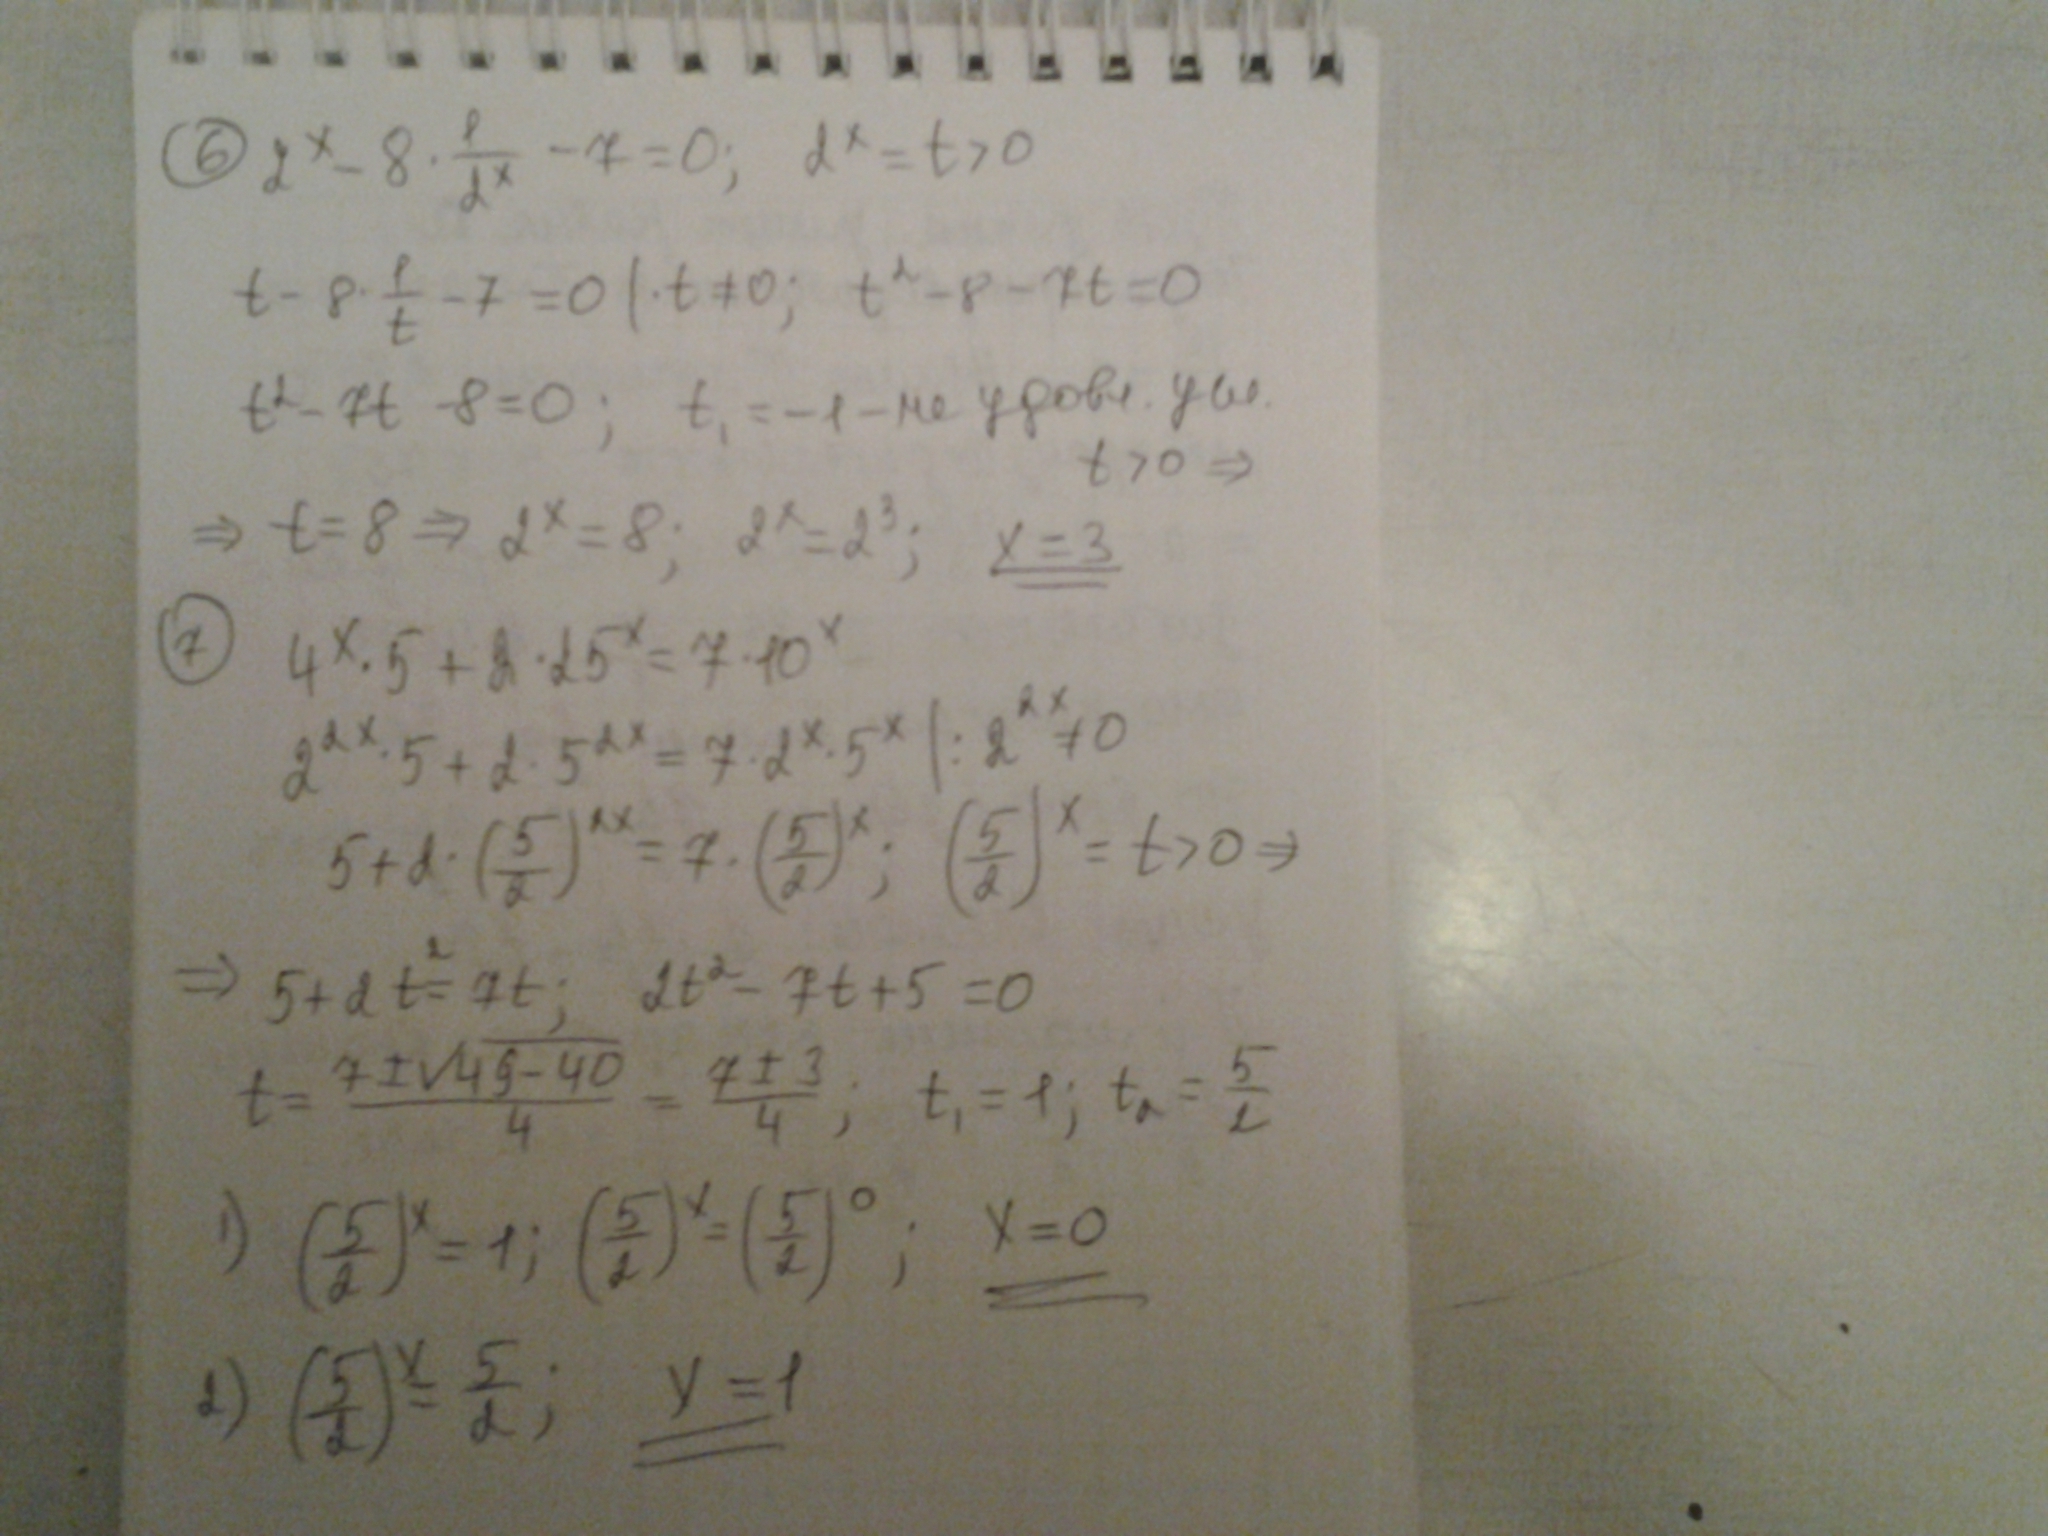 ⑥ 2^x - 8 · 1/2^x - 7 = 0; 2^x = t > 0
t - 8 · 1/t - 7 = 0 | · t ≠ 0; t² - 8 - 7t = 0
t² - 7t - 8 = 0; t₁ = -1 - не удовл. усл.
t > 0 ⇒
⇒ t = 8 ⇒ 2^x = 8; 2^x = 2³; x = 3
⑦ 4^x · 5 + 2 · 25^x = 7 · 10^x
2^(2x) · 5 + 2 · 5^(2x) = 7 · 2^x · 5^x | : 2^(2x) ≠ 0
5 + 2 · (5/2)^(2x) = 7 · (5/2)^x; (5/2)^x = t > 0 ⇒
⇒ 5 + 2t² = 7t; 2t² - 7t + 5 = 0
t = (7 ± √(49 - 40))/4 = (7 ± 3)/4; t₁ = 1; t₂ = 5/2
1) (5/2)^x = 1; (5/2)^x = (5/2)^0; x = 0
2) (5/2)^x = 5/2; x = 1